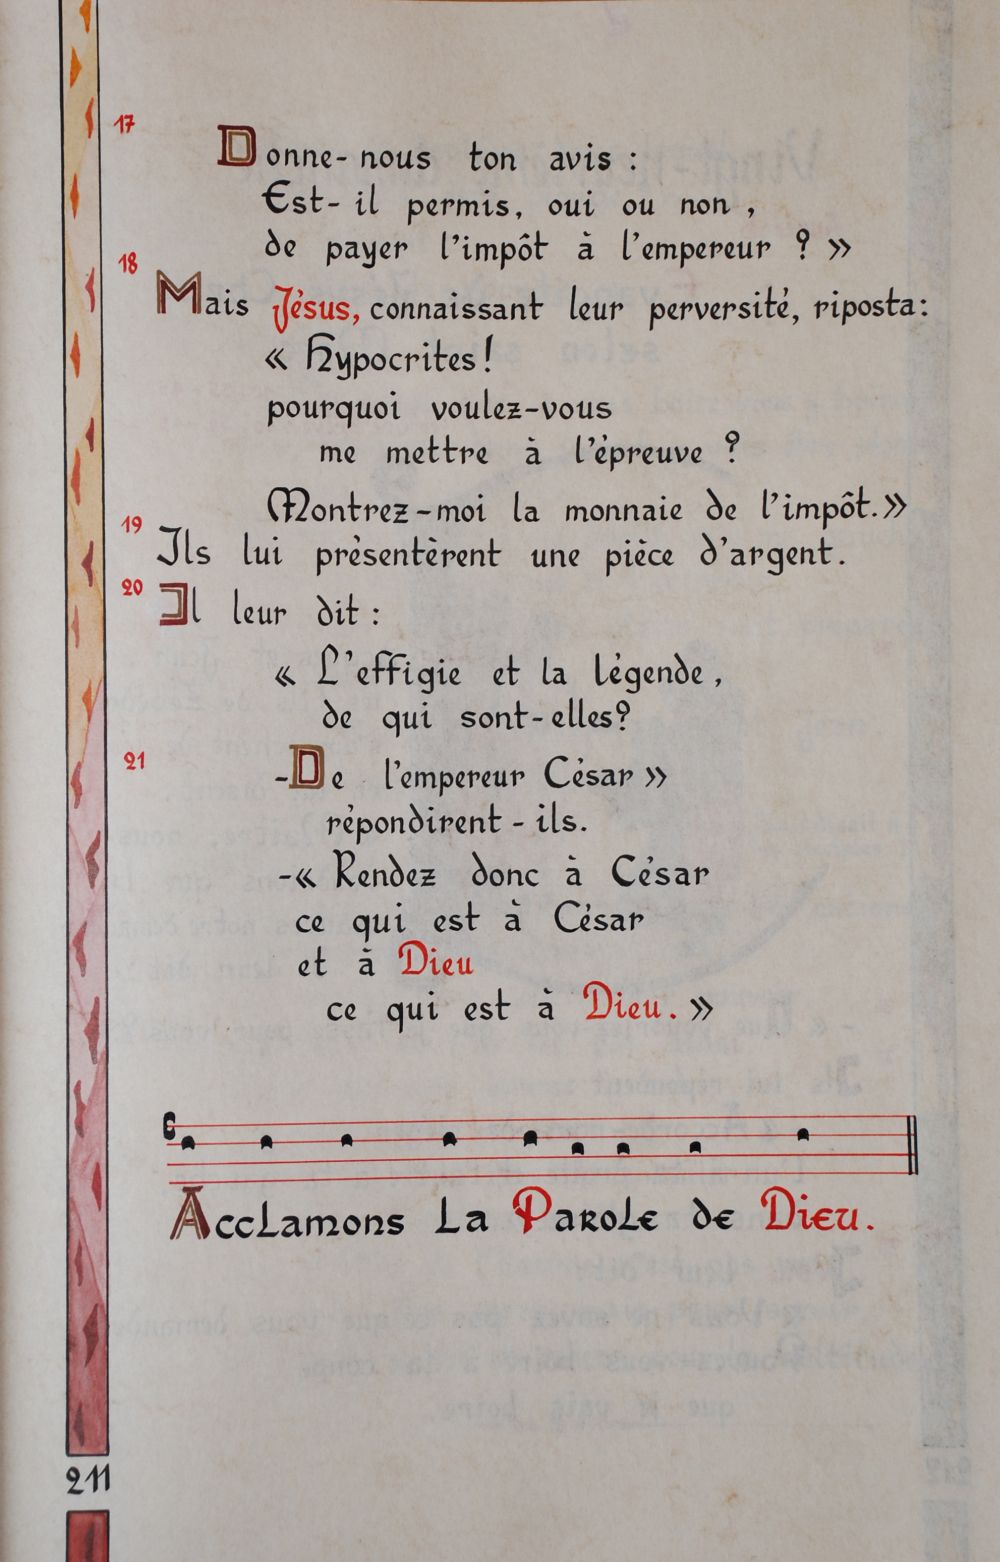 17
Donne-nous ton avis :
Est-il permis, oui ou non,
de payer l'impôt à l'empereur ? »
18
Mais Jésus, connaissant leur perversité, riposta:
« Hypocrites!
pourquoi voulez-vous
me mettre à l'épreuve ?
Montrez-moi la monnaie de l'impôt.»
19
Ils lui présentèrent une pièce d'argent.
20
Il leur dit :
« L'effigie et la légende,
de qui sont-elles?
21
-De l'empereur César »
répondirent-ils.
-« Rendez donc à César
ce qui est à César
et à Dieu
ce qui est à Dieu. »
Acclamons La Parole de Dieu.
211